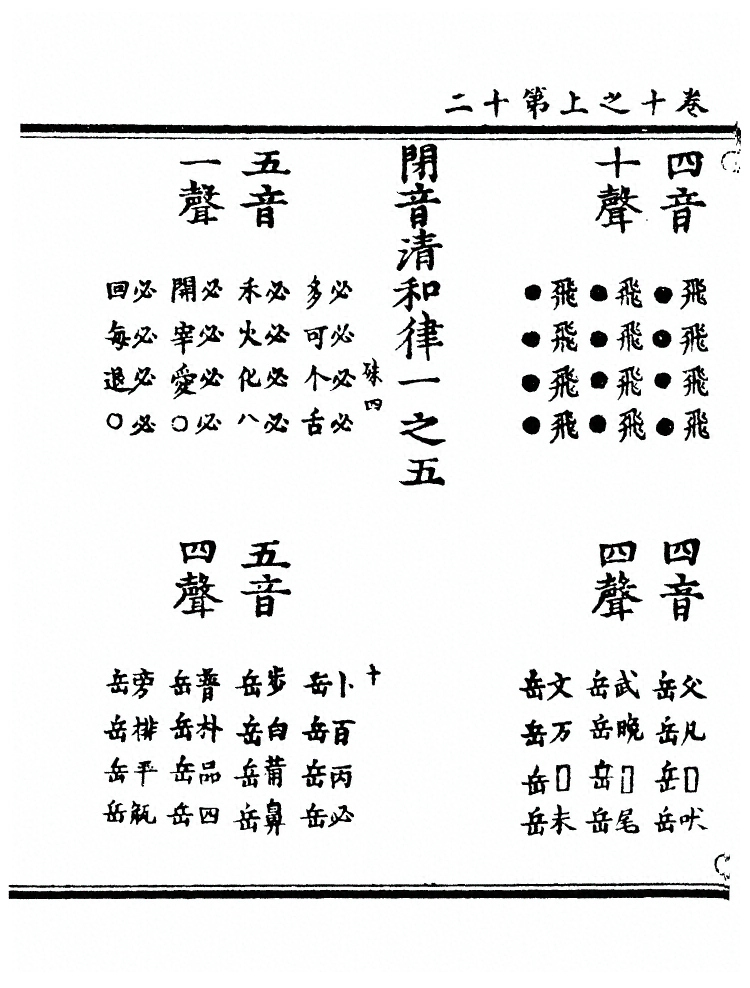 卷十之上第十二
四音
十聲
飛●飛●飛●
飛●飛●飛●
飛●飛●飛●
飛●飛●飛●
四音
四聲
父岳武岳文岳
凡岳晚岳万岳
□岳□岳□岳
吠岳尾岳未岳
閉音清和律一之五
五音
一聲
四
必多必禾必開必回
必可必火必宰必每
必个必化必愛必退
必舌必八必○必○
五音
四聲
十
卜岳步岳普岳旁岳
百岳白岳朴岳排岳
丙岳莆岳品岳平岳
必岳鼻岳四岳瓶岳